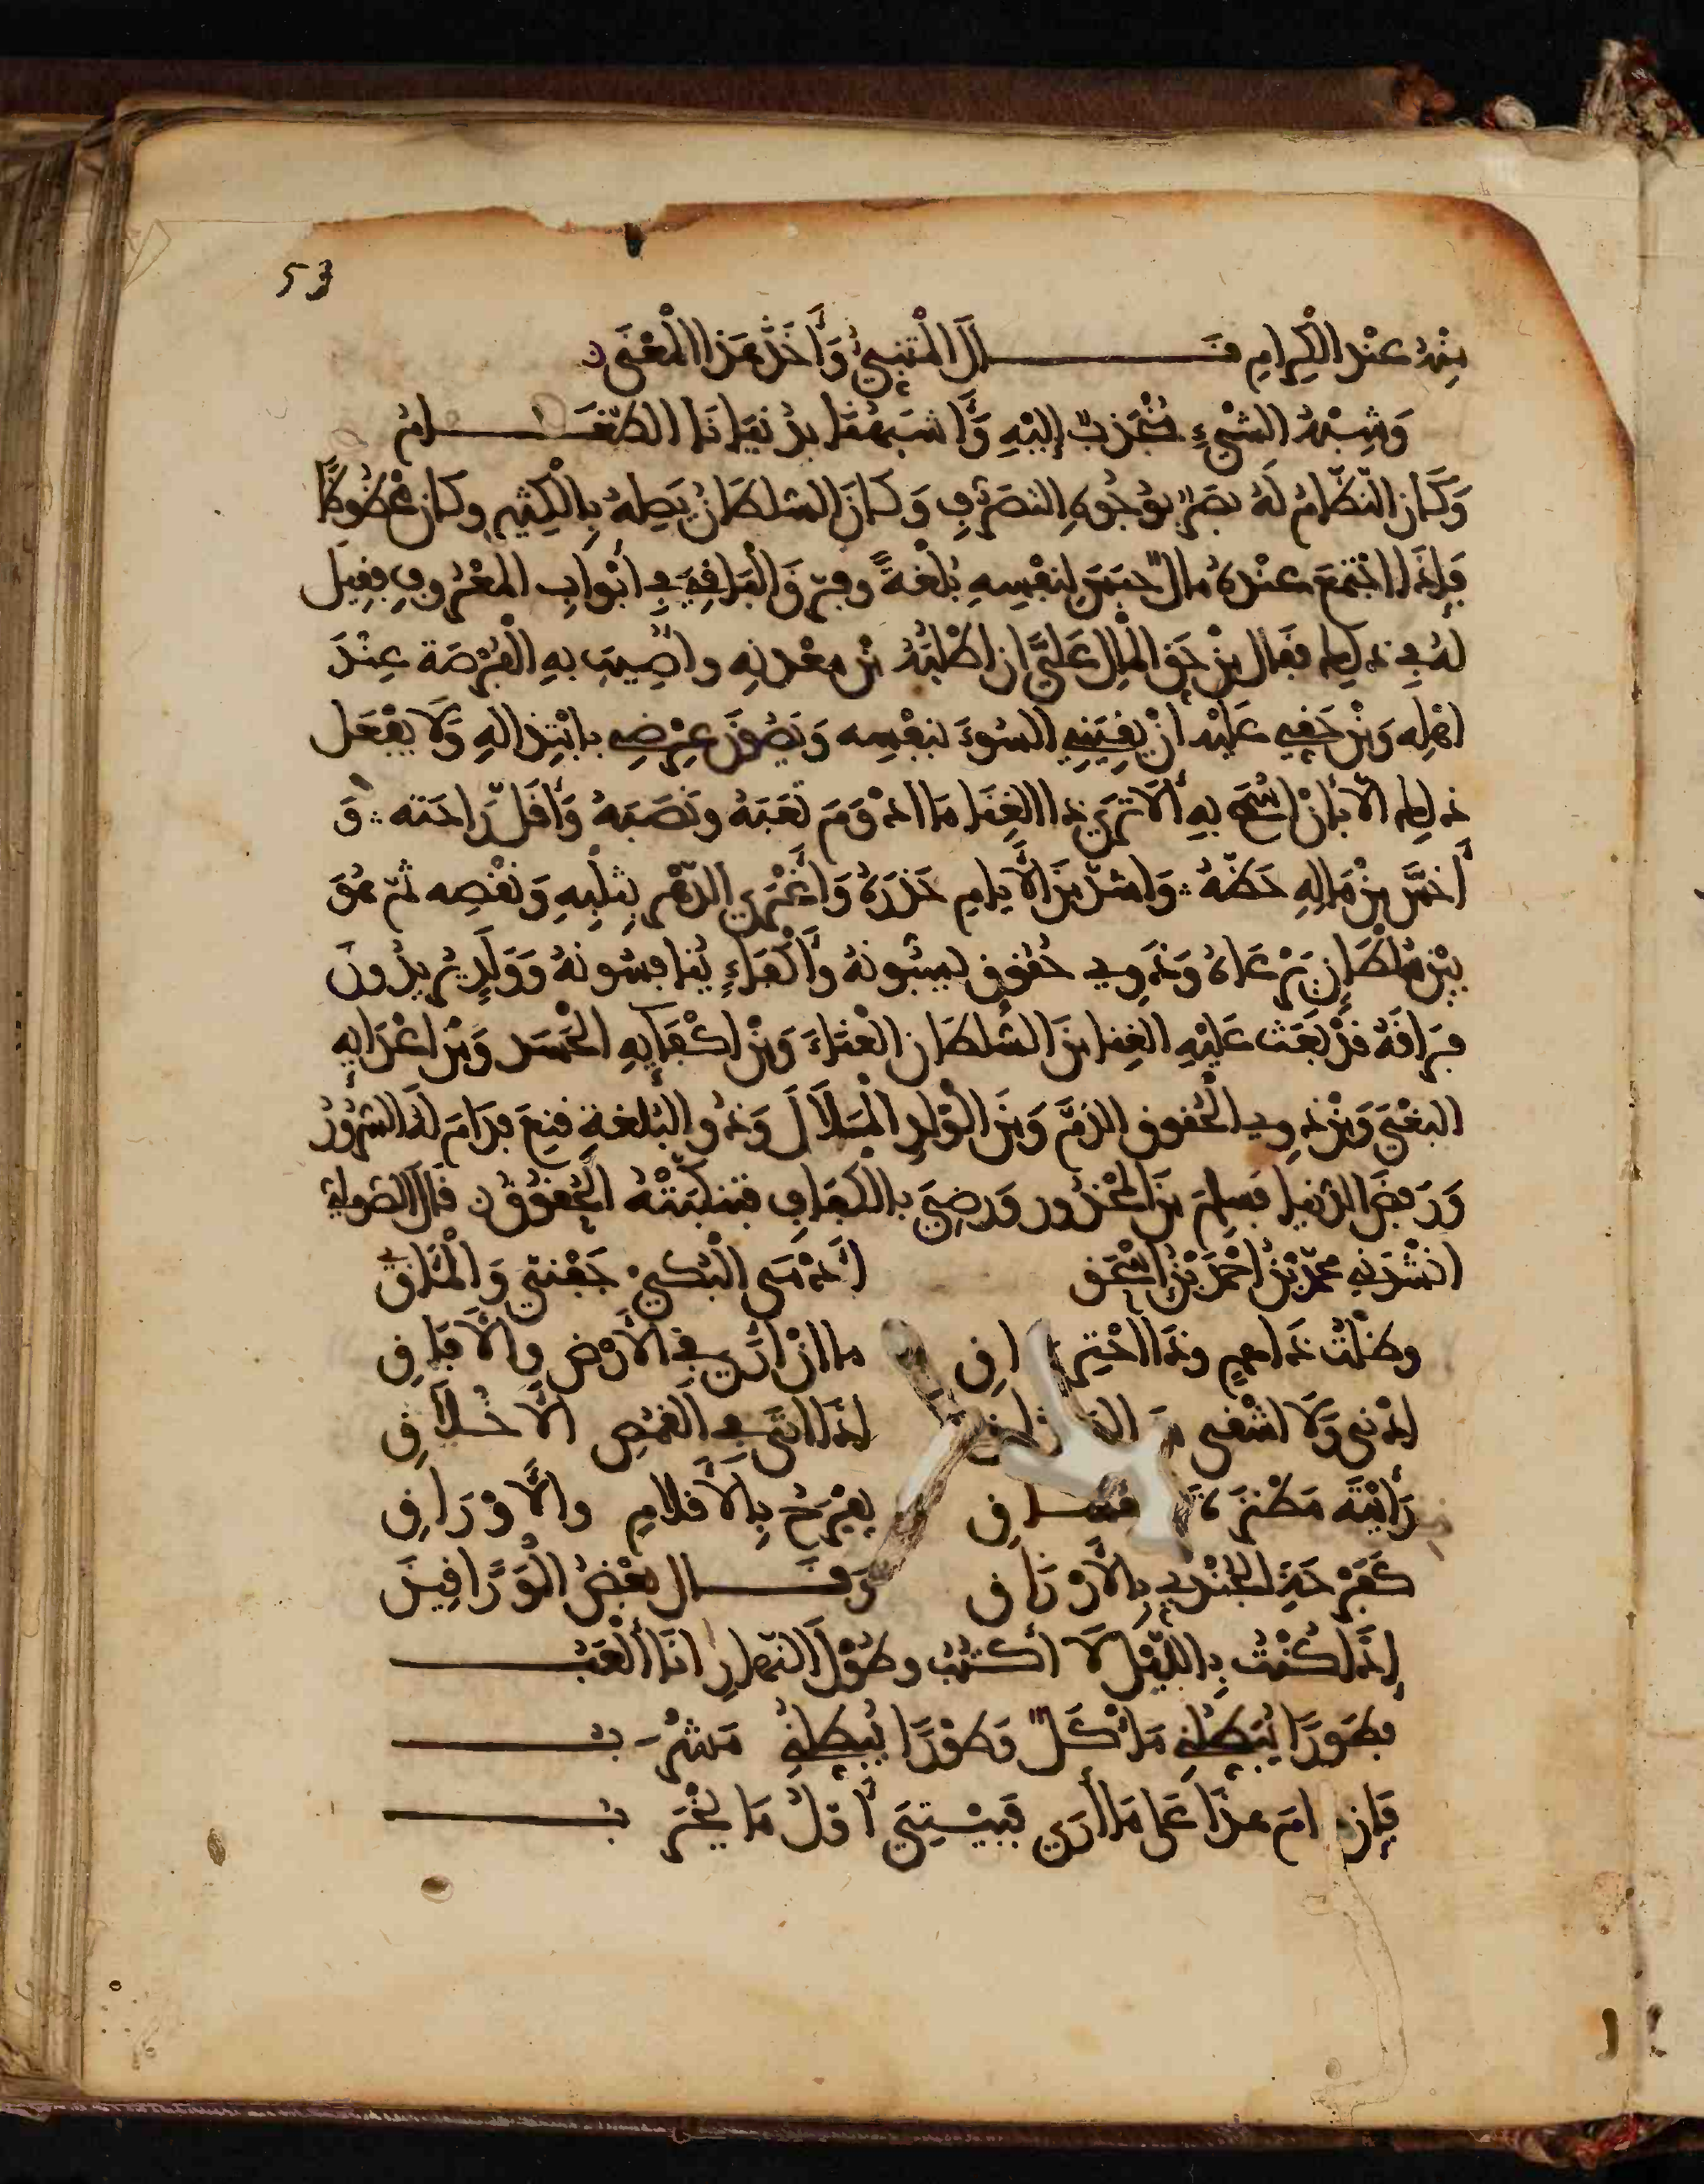 53
مِنْهُ عِنْدَ الْكِرَامِ قَـــالَ الْمُتَنَبِّي وَأَخَذَ هَذَا الْمَعْنَى
وَشِبْهُ الشَّيْءِ مُنْجَذِبٌ إِلَيْهِ وَأَشْبَهُنَا بِدُنْيَانَا الطَّغَـــامُ
وَكَانَ النَّظَّامُ لَهُ بَصَرٌ بِوُجُوهِ التَّصَرُّفِ وَكَانَ السُّلْطَانُ يَصِلُهُ بِالْكَثِيرِ وَكَانَ مَحْظُوظًا
فَإِذَا اجْتَمَعَ عِنْدَهُ مَالٌ حَبَسَ لِنَفْسِهِ بُلْغَةً وَفَرَّقَ الْبَاقِيَ فِي أَبْوَابِ الْمَعْرُوفِ فَقِيلَ
لَهُ فِي ذَلِكَ فَقَالَ مِنْ حَقِّ الْمَالِ عَلَيَّ أَنْ أَطْلُبَهُ مِنْ مَعْدِنِهِ وَأُصِيبَ بِهِ الْفُرْصَةَ عِنْدَ
أَهْلِهِ وَمِنْ حَقِّي عَلَيْهِ أَنْ يَقِيَنِي السُّوءَ بِنَفْسِهِ وَيَصُونَ عِرْضِي بِابْتِذَالِهِ وَلَا يَفْعَلُ
ذَلِكَ إِلَّا بِأَنْ أَسْمَحَ بِهِ أَلَا تَرَى ذَا الْغِنَا مَا أَدْوَمَ تَعَبَهُ وَنَصَبَهُ وَأَقَلَّ رَاحَتَهُ وَ
أَخَسَّ مِنْ مَالِهِ حَظَّهُ وَأَشَدَّ مِنَ الْأَيَّامِ حَذَرَهُ وَأَغْرَى الدَّهْرَ بِثَلْبِهِ وَنَقْصِهِ ثُمَّ هُوَ
بَيْنَ سُلْطَانٍ يَرْعَاهُ وَذَوِي حُقُوقٍ يَسُبُّونَهُ وَأَكْفَاءٍ يُنَافِسُونَهُ وَوَلَدٍ يُرِيدُونَ
فِرَاقَهُ قَدْ بَعَثَ عَلَيْهِ الْغِنَا مِنَ السُّلْطَانِ الْعَنَاءَ وَمِنْ أَكْفَائِهِ الْحَسَدَ وَمِنْ أَعْدَائِهِ
الْبَغْيَ وَمِنْ ذَوِي الْحُقُوقِ الذَّمَّ وَمِنَ الْوَلَدِ الْمَلَالَ وَذُو الْبُلْغَةِ قَنِعَ فَدَامَ لَهُ السُّرُورُ
وَرَفَضَ الدُّنْيَا فَسَلِمَ مِنَ الْمَحْذُورِ وَرَضِيَ بِالْكَفَافِ فَتَنَكَّبَتْهُ الْحُقُوقُ قَالَ الصُّولِيُّ
أَنْشَدَنِي مُحَمَّدُ بْنُ أَحْمَدَ بْنِ إِسْحَقَ أَدْمَى الْبُكَى جَفْنِيَ وَالْمَـآقِي
وَظَلْتُ ذَا هَمٍّ وَذَا احْتِرَاقِ مَا إِنْ أَرَى فِي الْأَرْضِ وَالْآفَاقِ
أَدْنَى وَلَا أَشْقَى مِنَ الْوَرَّاقِ إِذَا أَتَى فِي الْقُمُصِ الْأَخْلَاقِ
رَأَيْتَهُ مَطِنَّةَ يَفْرَحُ بِالْأَقْلَامِ وَالْأَوْرَاقِ
كَفَرْحَةِ الْجُنْدِيِّ بِالْأَرْزَاقِ وَقَـــالَ بَعْضُ الْوَرَّاقِينَ
إِذَا كُنْتُ بِاللَّيْلِ لَا أَكْتُبُ وَطُولَ النَّهَارِ أَنَا أَلْعَبُ
فَطَوْرًا يُبَطِّلُنِي مَأْكَلٌ وَطَوْرًا يُبَطِّلُنِي مَشْرَبُ
فَإِنْ دَامَ هَذَا عَلَى مَا أَرَى فَبَيْتِي أَوَّلُ مَا يَخْرَبُ